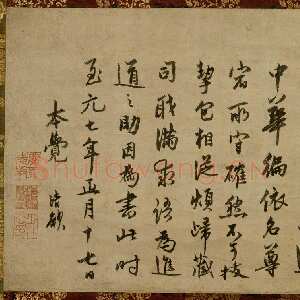 中華編依名尊
宕所守確然不可拔
挈包相從煩歸藏
司職滿求語為進
道之助因為書此時
至元七年正月十七日
本覺